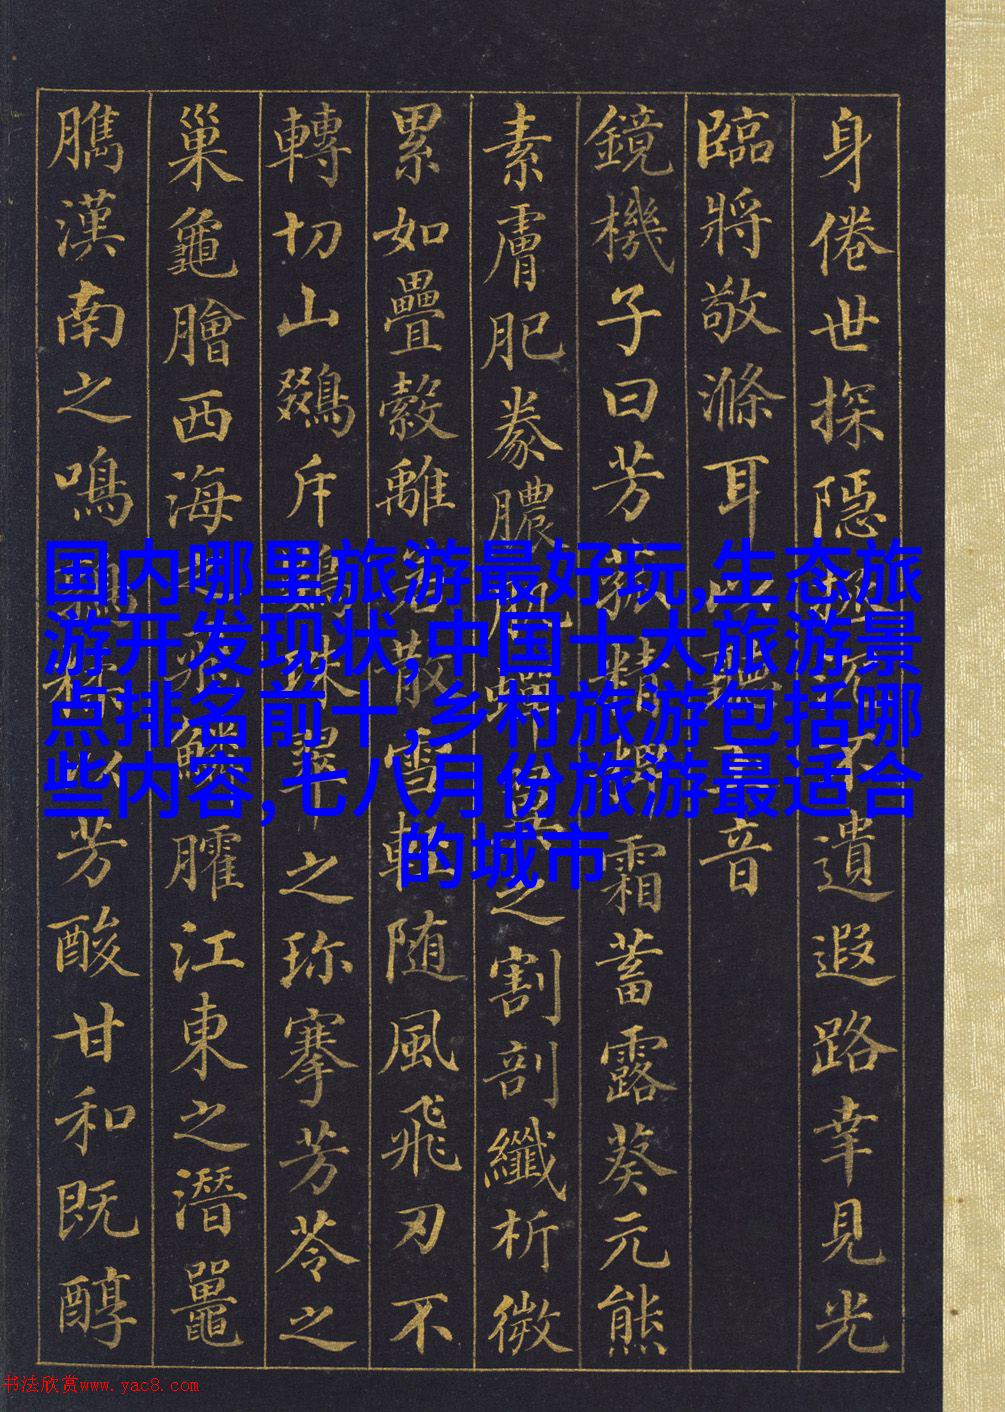 身倦世探隱拯沉不遺遐路幸見光
臨將敬滌耳以聽玉音
鏡機子曰芳菰精粺霜蓄露葵元熊
素膚肥豢膿肌蟬翼之割剖纖析微
累如疊縠離若散雪輕随風飛刃不
轉切山鵽斥鷃珠翠之珍搴芳苓之
巢龜膾西海之飛鱗臛江東之潛鼉
臇漢南之鳴鶉糅以芳酸甘和既醇
国内哪里旅游最好玩,生态旅
游开发现状,中国十大旅游景
点排名前十,乡村旅游包括哪
些内容,七八月份旅游最适合
的城市
书法欣赏www.yac8.com